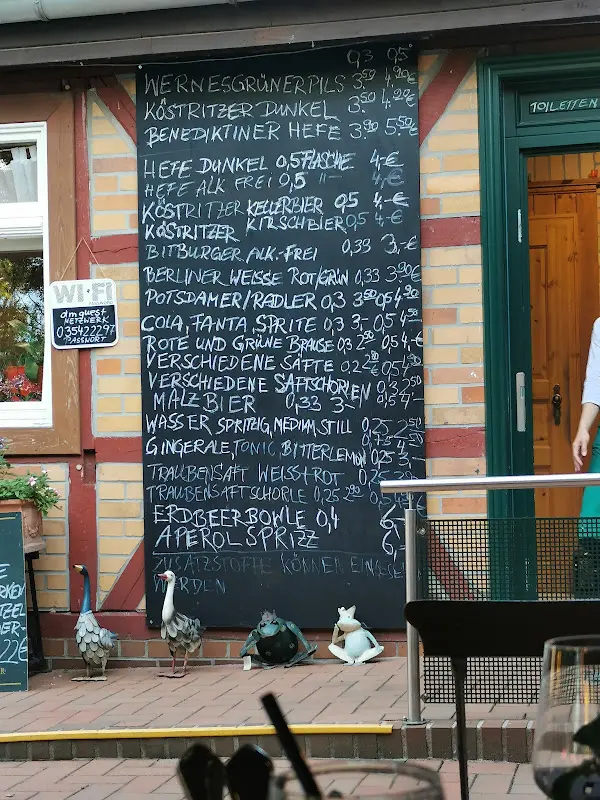 0,3 0,5
WERNESGRÜNER PILS 3.50 4.90€
KÖSTRITZER DUNKEL 3.50 4.90€
BENEDIKTINER HEFE 3.90 5.50€
HEFE DUNKEL 0,5 FLASCHE 4,-€
HEFE ALK FREI 0,5 -"- 4,-€
KÖSTRITZER KELLERBIER 0,5 4,-€
KÖSTRITZER KIRSCHBIER 0,5 4,-€
BITBURGER ALK.-FREI 0,33 3,-€
BERLINER WEISSE ROT/GRÜN 0,33 3,90€
POTSDAMER/RADLER 0,3 3,50 0,5 4,90
COLA, FANTA, SPRITE 0,3 3,- 0,5 4,50
ROTE UND GRÜNE BRAUSE 0,3 2,50 0,5 4,-€
VERSCHIEDENE SÄFTE 0,2 2,50 0,5
VERSCHIEDENE SAFTSCHORLEN 0,3 2,50
MALZBIER 0,33 3,- 0,5 4,-
WASSER SPRITZIG, MEDIUM, STILL 0,25 2,50
GINGERALE, TONIC BITTERLEMON 0,25
TRAUBENSAFT WEISS+ROT 0,25
TRAUBENSAFTSCHORLE 0,25
ERDBEERBOWLE 0,4 6,-
APEROL SPRIZZ 6,-
ZUSATZSTOFFE KÖNNEN EINGESE
WERDEN
TOILETTEN
Wi-Fi
dmguest
NETZWERK
035422297
PASSWORT
22€